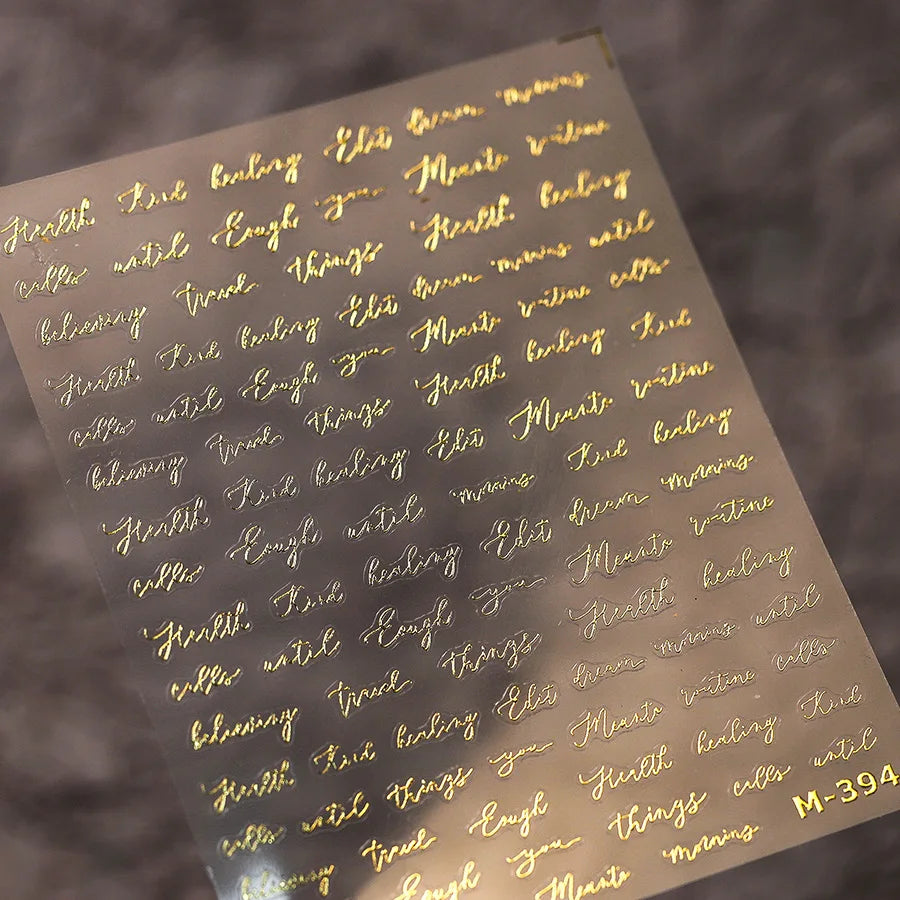 Health Kind healing Edit dream morning
calls until Eough you Meante routine
believing travel things Health healing
Health Kind healing Edit dream morning until
calls until Eough you Meante routine calls
believing travel things Health healing Kind
Health Kind healing Edit Meante routine
calls Eough until morning Kind healing
Health Kind healing Edit dream morning
calls until Eough you Meante routine
believing travel things Health healing
Health Kind healing Edit dream morning until
calls until things you Meante routine calls
believing travel Eough Health healing Kind
Eough you things calls until
Meante morning M-394